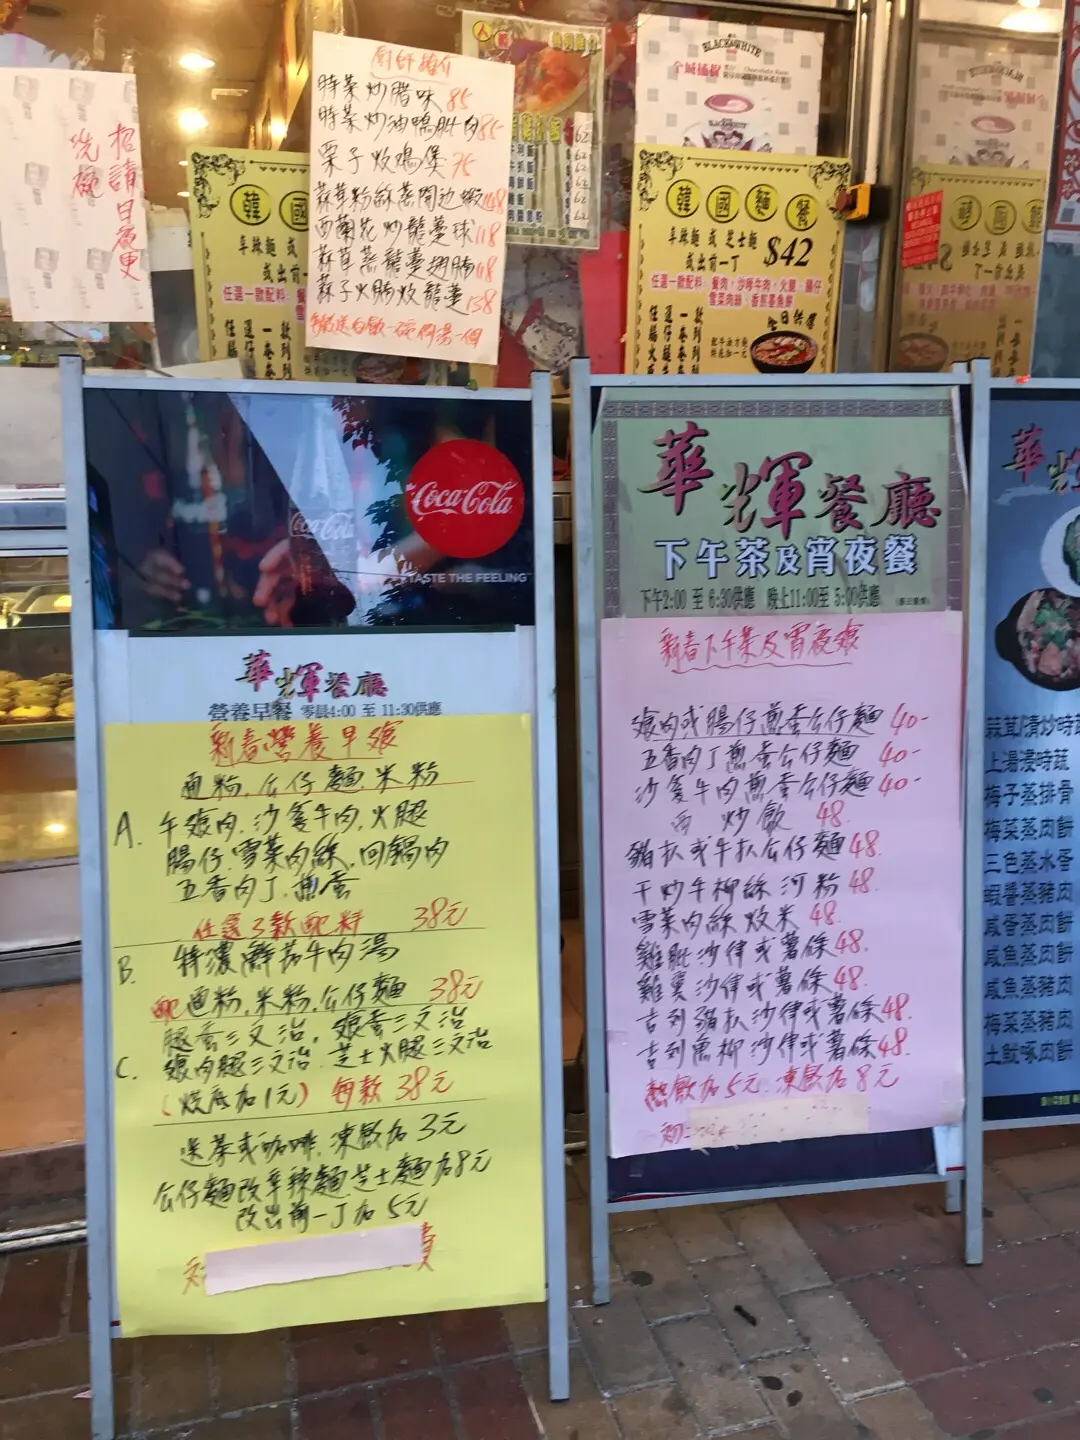 招請日夜更
洗碗
廚師推介
時菜炒腊味 85
時菜炒油鴨肶肉 85
栗子炆鴻煲 75
蒜茸粉絲蒸開边蝦 168
西蘭花炒龍躉球 118
蒜茸蒸龍躉翅腩
蒜子火腩炆龍躉 138
BLACK&WHITE
全城撐檯
韓國麵餐
辛辣麵 或 芝士麵
或出前一丁
$42
任選一款配料：餐肉，沙嗲牛肉，火腿，腸仔
雪菜肉絲，香煎墨魚餅
全日供應
韓國
辛辣麵 或
或出前
Coca-Cola
TASTE THE FEELING
華輝餐廳
營養早餐 零晨4:00 至 11:30供應
新春營養早餐
通粉，公仔麵，米粉
A. 午餐肉，沙爹牛肉，火腿
腸仔，雪菜肉絲，回鍋肉
五香肉丁，煎蛋
任選3款配料 38元
B. 特濃鮮茄牛肉湯
配通粉，米粉，公仔麵 38元
腿蛋三文治，餐蛋三文治
C. 餐肉腿三文治，芝士火腿三文治
(烘底加1元) 每款 38元
送茶或咖啡，凍飲加3元
公仔麵改辛辣麵芝士麵加8元
改出前一丁加5元
華輝餐廳
下午茶及宵夜餐
下午2:00 至 6:30供應 晚上11:00至 5:00供應
新春下午茶及宵夜餐
餐肉或腸仔煎蛋公仔麵 40-
五香肉丁煎蛋公仔麵 40-
沙爹牛肉煎蛋公仔麵 40-
西炒飯 48.
豬扒或牛扒公仔麵 48.
干炒牛柳絲河粉 48.
雪菜肉絲炆米 48.
雞肶沙律或薯條 48.
雞翼沙律或薯條 48.
吉列豬扒沙律或薯條 48.
吉列魚柳沙律或薯條 48.
熱飲加5元，凍飲加8元
華輝
蒜茸/清炒時蔬
上湯浸時蔬
梅子蒸排骨
梅菜蒸肉餅
三色蒸水蛋
蝦醬蒸豬肉
咸蛋蒸肉餅
咸魚蒸肉餅
咸魚蒸豬肉
梅菜蒸豬肉
土魷啄肉餅